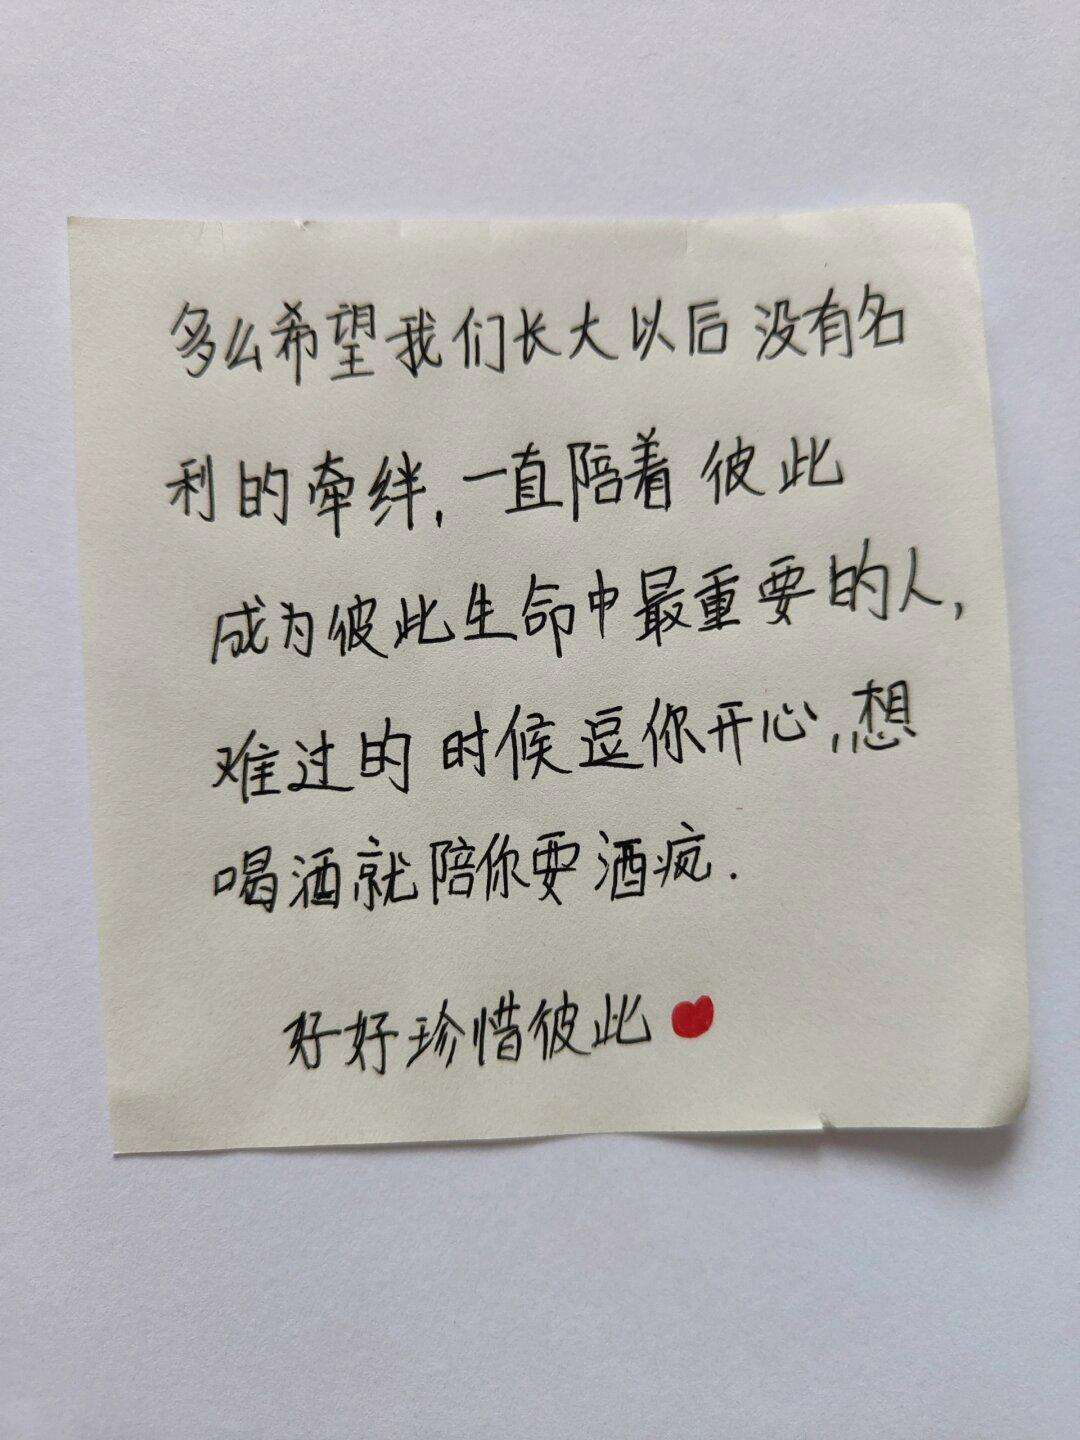 多么希望我们长大以后没有名
利的牵绊,一直陪着彼此
成为彼此生命中最重要的人,
难过的时候逗你开心,想
喝酒就陪你耍酒疯.
好好珍惜彼此